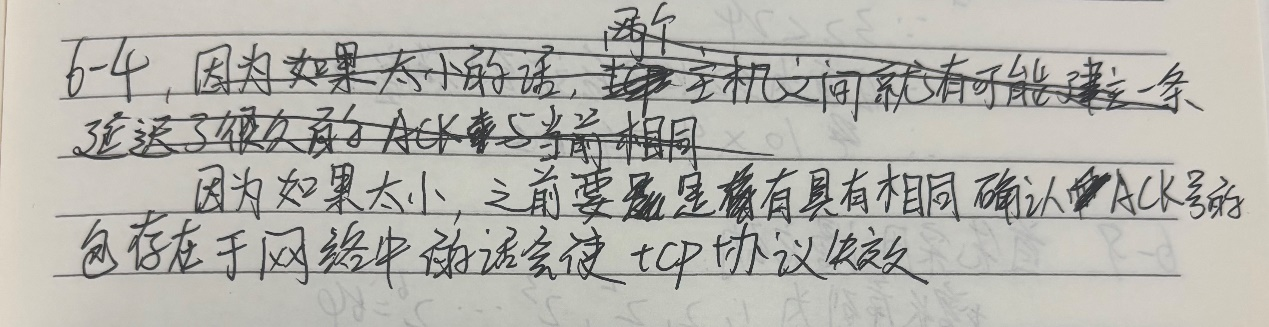 两个
6-4,因为如果太小的话,主机之间就有可能建立一条
延迟了很久的ACK与当前相同
因为如果太小,之前要是有具有相同确认ACK号的
包存在于网络中的话会使tCP协议失效